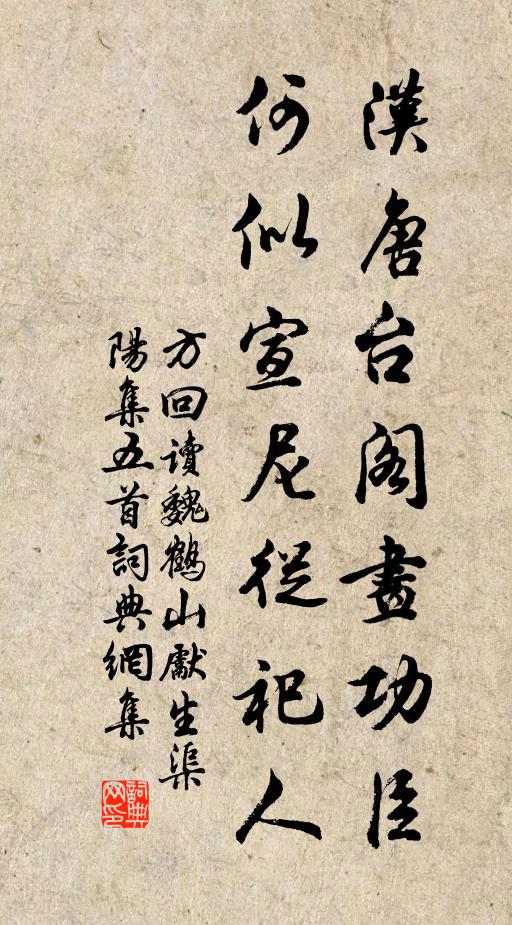 漢唐台阁畫功臣
何似宣尼從祀人
方回讀魏鶴山獻生渠
陽集五首詞典網集
詞典网印